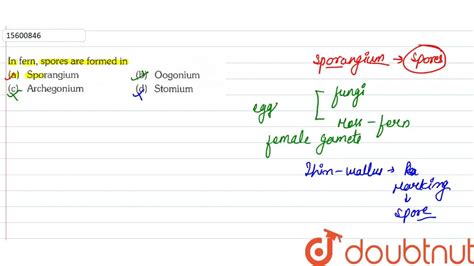 15600846
In fern, spores are formed in
(a) Sporangium (b) Oogonium
(c) Archegonium (d) Stomium
Sporangium → Spores
egg
fungi
Moss - fern
female gamete
Thin-walled →
Marking
↓
Spore
doubtnut